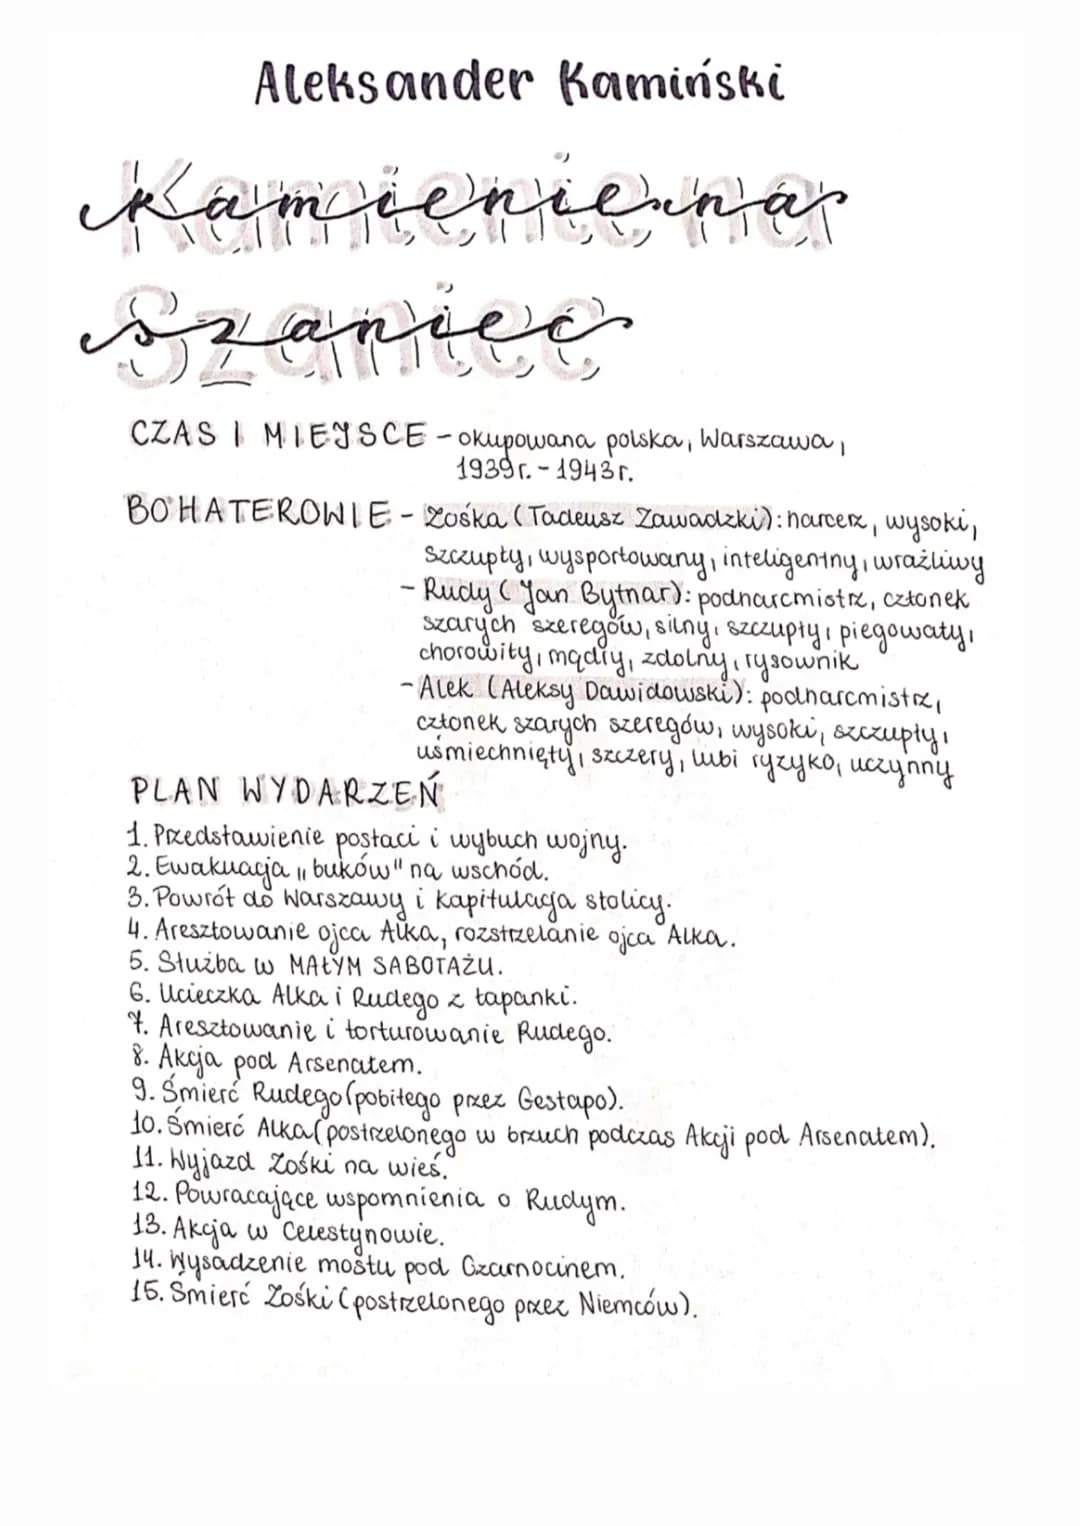 Aleksander Kamiński
Kamienie na
Szaniec
CZAS I MIEJSCE - okupowana polska, Warszawa,
1939r. - 1943r.
BOHATEROWIE - Zośka (Tadeusz Zawadzki): harcerz, wysoki,
szczupły, wysportowany, inteligentny, wrażliwy
- Rudy (Jan Bytnar): podharcmistrz, członek
szarych szeregów, silny, szczupły, piegowaty,
chorowity, mądry, zdolny, rysownik
- Alek (Aleksy Dawidowski): podharcmistrz,
członek szarych szeregów, wysoki, szczupły,
uśmiechnięty, szczery, lubi ryzyko, uczynny
PLAN WYDARZEŃ
1. Przedstawienie postaci i wybuch wojny.
2. Ewakuacja „buków" na wschód.
3. Powrót do Warszawy i kapitulacja stolicy.
4. Aresztowanie ojca Alka, rozstrzelanie ojca Alka.
5. Służba w MAŁYM SABOTAŻU.
6. Ucieczka Alka i Rudego z łapanki.
7. Aresztowanie i torturowanie Rudego.
8. Akcja pod Arsenałem.
9. Śmierć Rudego (pobitego przez Gestapo).
10. Śmierć Alka (postrzelonego w brzuch podczas Akcji pod Arsenałem).
11. Wyjazd Zośki na wieś.
12. Powracające wspomnienia o Rudym.
13. Akcja w Celestynowie.
14. Wysadzenie mostu pod Czarnocinem.
15. Śmierć Zośki (postrzelonego przez Niemców).